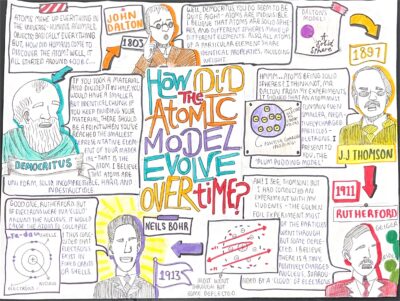 ATOMS MADE UP EVERYTHING IN
THE UNIVERSE - HUMANS, ANIMALS,
OBJECTS, BASICALLY EVERYTHING.
BUT, HOW DID HUMANS COME TO
DISCOVER THE ATOM? WELL, IT
ALL STARTED AROUND 400 B.C...
JOHN
DALTON
1803
WELL, DEMOCRITUS, YOU TO SEEM TO BE
QUITE RIGHT - ATOMS ARE INDIVISIBLE.
I BELIEVE THAT ATOMS ARE SOLID SPHERES
AND DIFFERENT SPHERES MAKE UP
DIFFERENT ELEMENTS. ALSO, ALL ATOMS
OF A PARTICULAR ELEMENT SHARE
IDENTICAL PROPERTIES, INCLUDING
WEIGHT.
DALTON'S
MODEL:
a solid
sphere
1897
HOW DID
THE
ATOMIC
MODEL
EVOLVE
OVER TIME?
IF YOU TOOK A MATERIAL
AND DIVIDED IT IN HALF, YOU
WOULD HAVE A SMALLER
BUT IDENTICAL CHUNK. IF
YOU KEEP DIVIDING YOUR
MATERIAL, THERE SHOULD
BE A POINT WHEN YOU'VE
REACHED THE SMALLEST
REPRESENTATIVE ELEMENT
OF YOUR MATTER
- THAT IS THE
ATOM. I BELIEVE
THAT ATOMS ARE
UNIFORM, SOLID, INCOMPRESSIBLE, HARD, AND
INDESTRUCTIBLE
DEMOCRITUS
HMMM... ATOMS BEING SOLID
SPHERES? I THINK NOT, MR.
DALTON. FROM MY EXPERIMENTS
I FOUND THAT
EVEN
SMALLER, NEGATIVELY
CHARGED
I
PRESENT TO
YOU, THE
"PLUM PUDDING MODEL"
J.J THOMSON
1911
RUTHERFORD
GEIGER
AH! I SEE, THOMSON! BUT
I HAD CONDUCTED AN
EXPERIMENT WITH MY
STUDENTS - THE GOLD
FOIL EXPERIMENT. MOST
OF THE PARTICLES
WENT THROUGH
BUT SOME DEFLECTED.
I BELIEVE
THERE IS A TINY,
POSITIVELY CHARGED
BY A 'CLOUD' OF ELECTRONS
MOST WENT
THROUGH BUT
SOME DEFLECTED
NEILS BOHR
1913
GOOD ONE, RUTHERFORD. BUT
IF ELECTRONS WERE IN A 'CLOUD'
AROUND THE NUCLEUS, IT WOULD
CAUSE THE ATOM TO COLLAPSE.
Ta-da
I THUS DISCOVERED
THAT
ELECTRONS
EXIST IN
ORBITALS
OR SHELLS
ELECTRONS
NUCLEUS